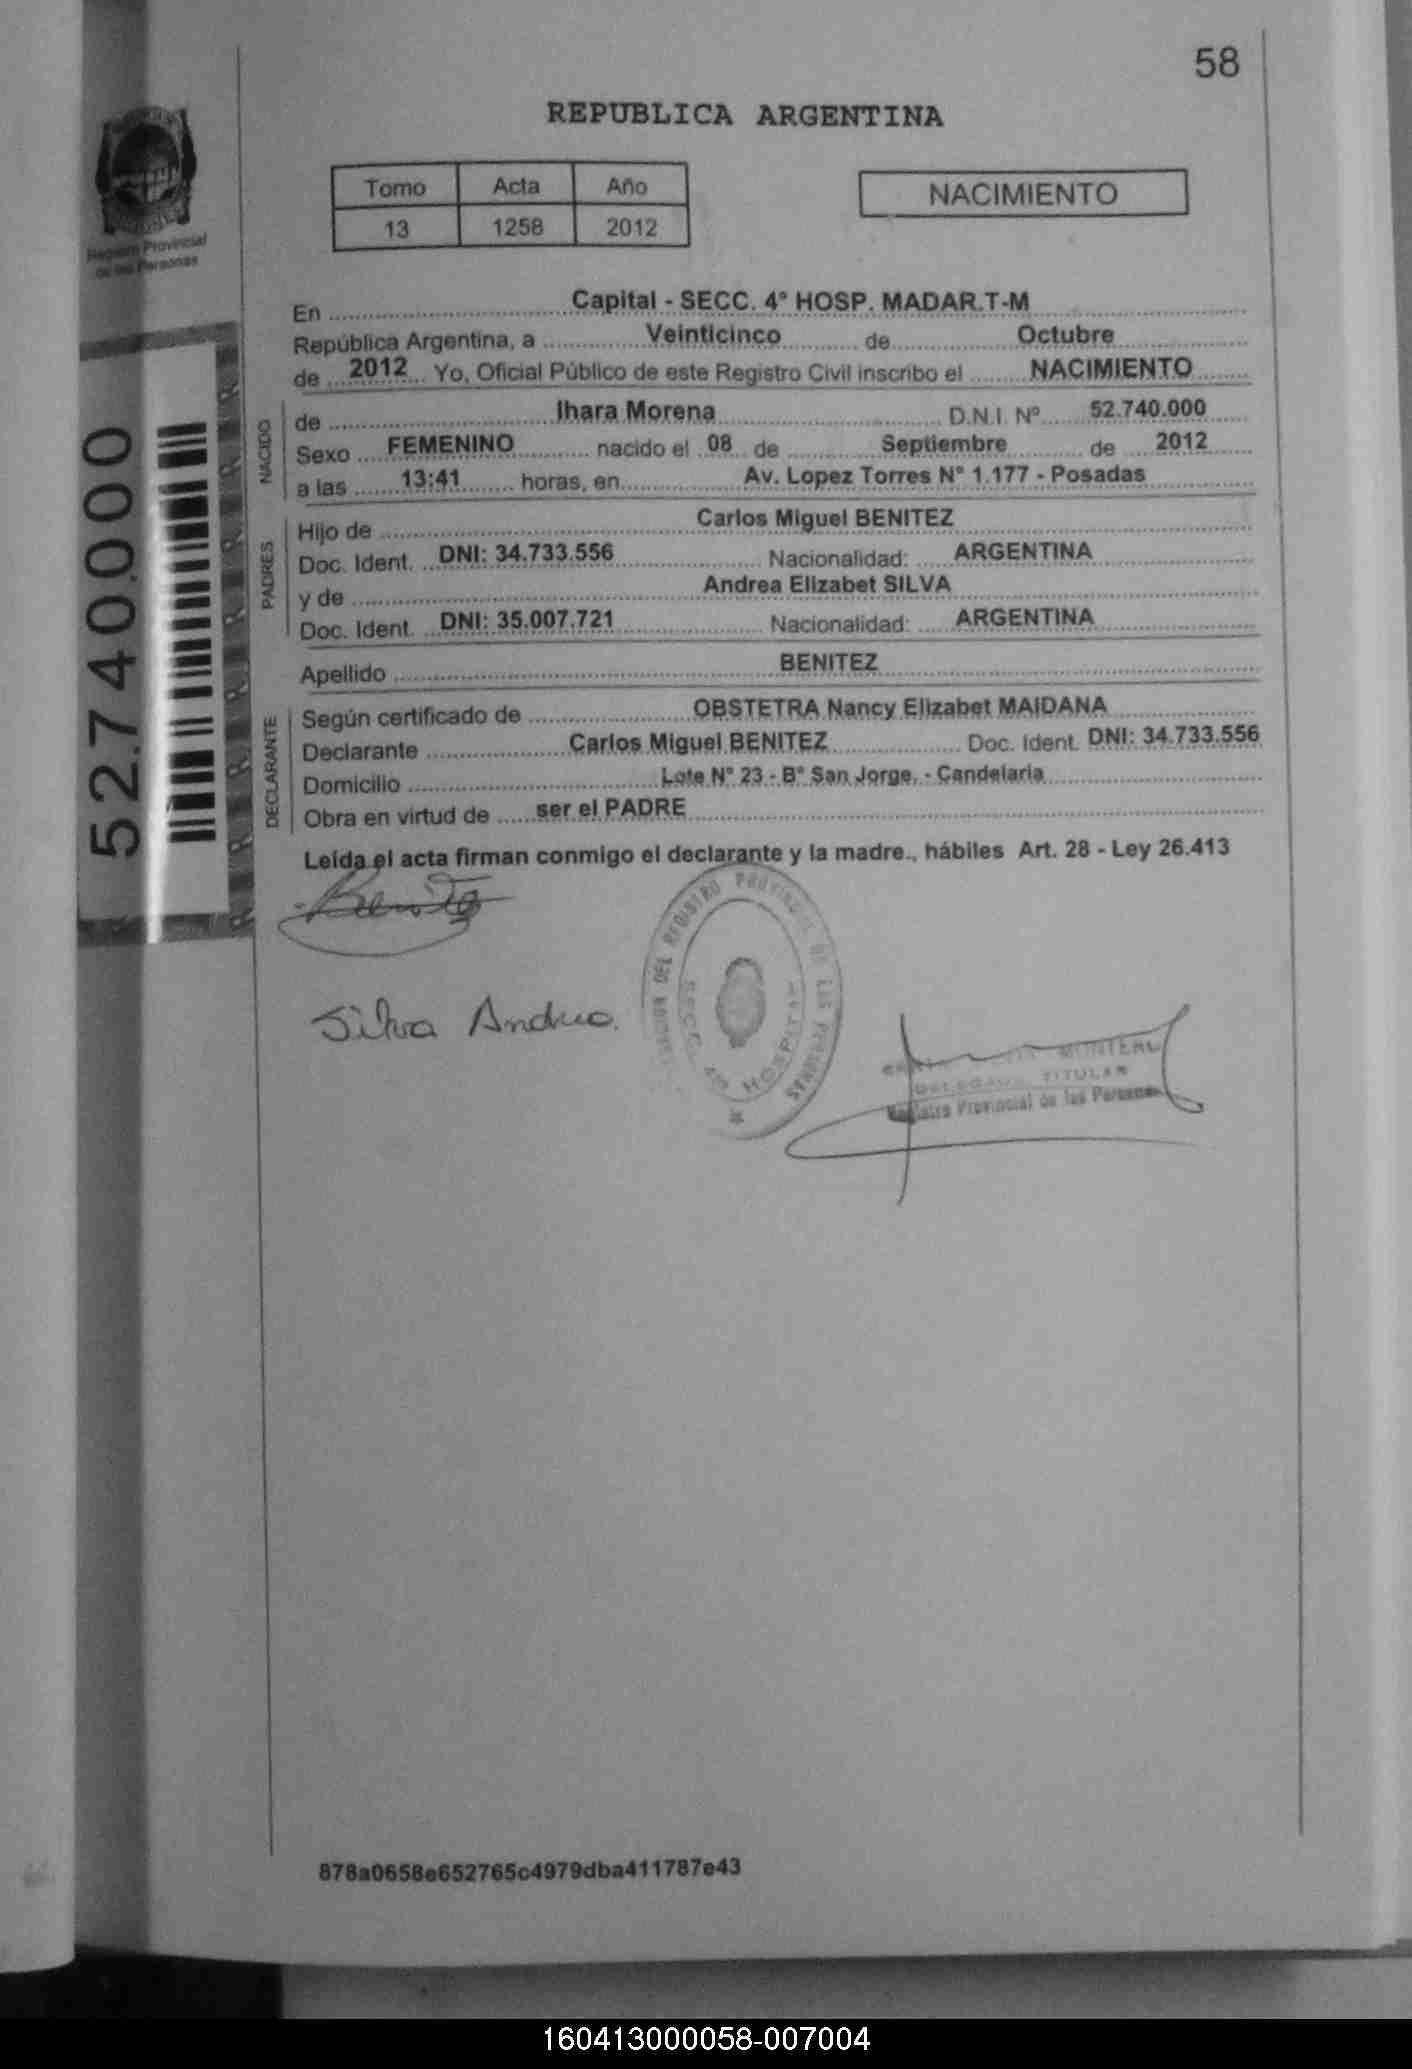 58
REPUBLICA ARGENTINA
Tomo Acta Año
13 1258 2012
NACIMIENTO
Registro Provincial
de las Personas
52.740.000
En Capital - SECC. 4° HOSP. MADAR.T-M
República Argentina, a Veinticinco de Octubre
de 2012 Yo, Oficial Público de este Registro Civil inscribo el NACIMIENTO
NACIDO
de Ihara Morena D.N.I. Nº 52.740.000
Sexo FEMENINO nacido el 08 de Septiembre de 2012
a las 13:41 horas, en Av. Lopez Torres N° 1.177 - Posadas
PADRES
Hijo de Carlos Miguel BENITEZ
Doc. Ident. DNI: 34.733.556 Nacionalidad: ARGENTINA
y de Andrea Elizabet SILVA
Doc. Ident. DNI: 35.007.721 Nacionalidad: ARGENTINA
Apellido BENITEZ
DECLARANTE
Según certificado de OBSTETRA Nancy Elizabet MAIDANA
Declarante Carlos Miguel BENITEZ Doc. Ident. DNI: 34.733.556
Domicilio Lote N° 23 - B° San Jorge, - Candelaria
Obra en virtud de ser el PADRE
Leída el acta firman conmigo el declarante y la madre., hábiles Art. 28 - Ley 26.413
Benitez
Silva Andrea.
DEL REGISTRO PROVINCIAL DE LAS PERSONAS
SECC. 4° HOSPITAL
TITULAR
Registro Provincial de las Personas
878a0658e652765c4979dba411787e43
160413000058-007004